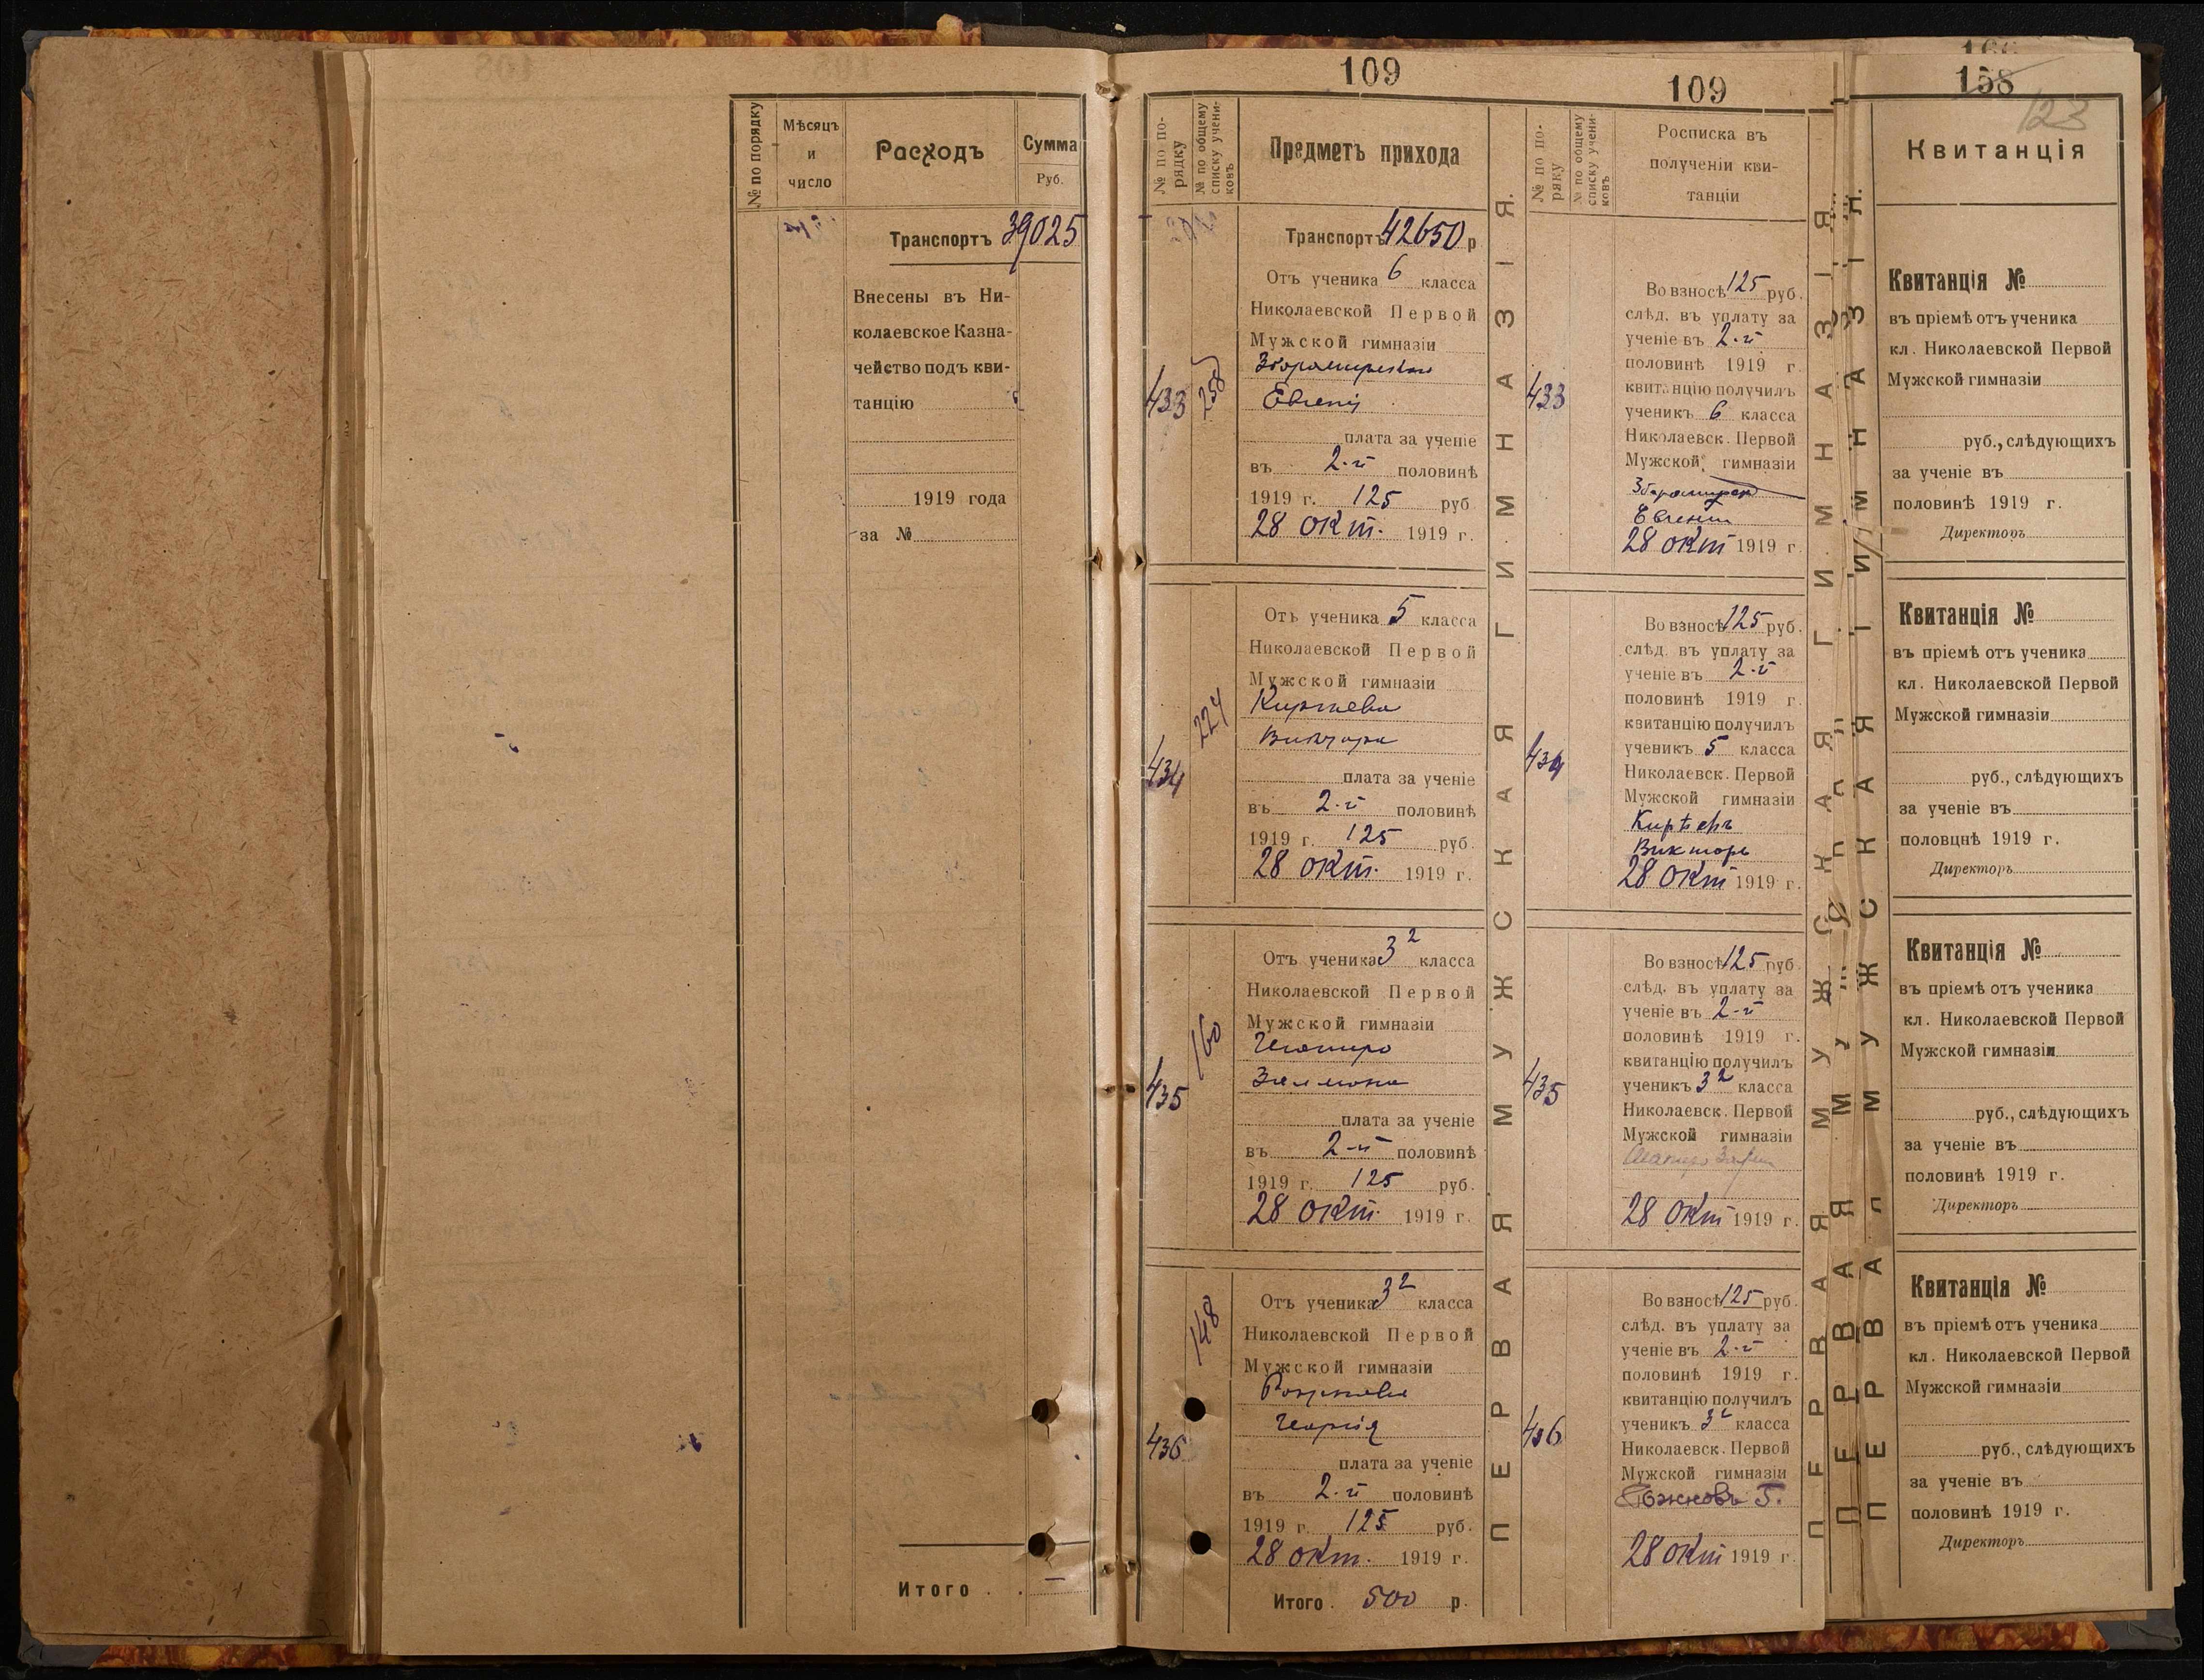 № по порядку
Мѣсяцъ
и
число
Расходъ
Сумма
Руб.
Транспортъ 39025
Внесены въ Ни-
колаевское Казна-
чейство подъ кви-
танцію
1919 года
за №
Итого . . —
109
№ по по-
рядку
№ по общему
списку учени-
ковъ
Предметъ прихода
Транспортъ 42650 р
433
258
Отъ ученика 6 класса
Николаевской Первой
Мужской гимназіи
Евгенiй
плата за ученіе
въ 2-й половинѣ
1919 г. 125 руб
28 окт. 1919 г.
434
224
Отъ ученика 5 класса
Николаевской Первой
Мужской гимназіи
Виктора
плата за ученіе
въ 2-й половинѣ
1919 г. 125 руб.
28 окт. 1919 г.
435
160
Отъ ученика 3² класса
Николаевской Первой
Мужской гимназіи
Шапиро
Залмана
плата за ученіе
въ 2-й половинѣ
1919 г. 125 руб.
28 окт. 1919 г.
436
148
Отъ ученика 3² класса
Николаевской Первой
Мужской гимназіи
Георгія
плата за ученіе
въ 2-й половинѣ
1919 г. 125 руб.
28 окт. 1919 г.
Итого . 500 р.
ПЕРВАЯ МУЖСКАЯ ГИМНАЗІЯ.
109
№ по по-
ряку
№ по общему
списку учени-
ковъ
Росписка въ
полученіи кви-
танціи
433
Во взносѣ 125 руб.
слѣд. въ уплату за
ученіе въ 2-й
половинѣ 1919 г.
квитанцію получилъ
ученикъ 6 класса
Николаевск. Первой
Мужской гимназіи
Евгеній
28 окт 1919 г.
434
Во взносѣ 125 руб.
слѣд. въ уплату за
ученіе въ 2-й
половинѣ 1919 г.
квитанцію получилъ
ученикъ 5 класса
Николаевск. Первой
Мужской гимназіи
Викторъ
28 окт 1919 г.
435
Во взносѣ 125 руб.
слѣд. въ уплату за
ученіе въ 2-й
половинѣ 1919 г.
квитанцію получилъ
ученикъ 3² класса
Николаевск. Первой
Мужской гимназіи
Шапиро
28 окт 1919 г.
436
Во взносѣ 125 руб.
слѣд. въ уплату за
ученіе въ 2-й
половинѣ 1919 г.
квитанцію получилъ
ученикъ 3² класса
Николаевск. Первой
Мужской гимназіи
28 окт 1919 г.
ПЕРВАЯ МУЖСКАЯ ГИМНАЗІЯ
158
123
Квитанція
Квитанція №
въ пріемѣ отъ ученика
кл. Николаевской Первой
Мужской гимназіи
руб., слѣдующихъ
за ученіе въ
половинѣ 1919 г.
Директоръ
Квитанція №
въ пріемѣ отъ ученика
кл. Николаевской Первой
Мужской гимназіи
руб., слѣдующихъ
за ученіе въ
половцнѣ 1919 г.
Директоръ
Квитанція №
въ пріемѣ отъ ученика
кл. Николаевской Первой
Мужской гимназіи
руб., слѣдующихъ
за ученіе въ
половинѣ 1919 г.
Директоръ
Квитанція №
въ пріемѣ отъ ученика
кл. Николаевской Первой
Мужской гимназіи
руб., слѣдующихъ
за ученіе въ
половинѣ 1919 г.
Директоръ